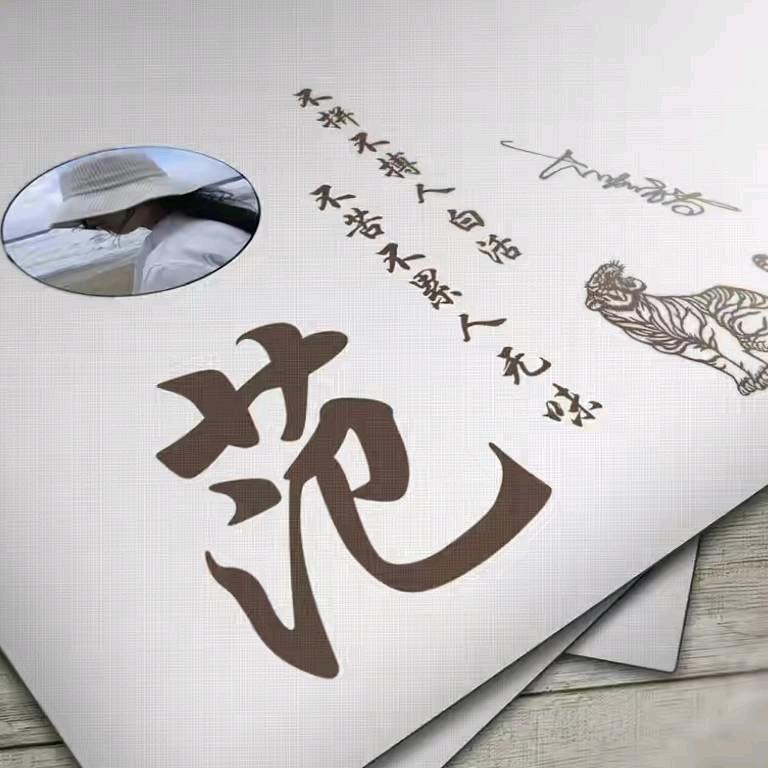 不拼不搏人白活
不苦不累人无味
范